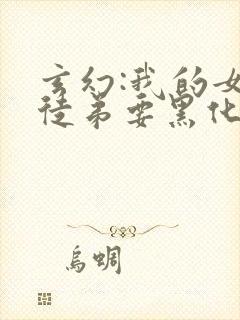 玄幻:我的女
徒弟要黑化
乌蜩